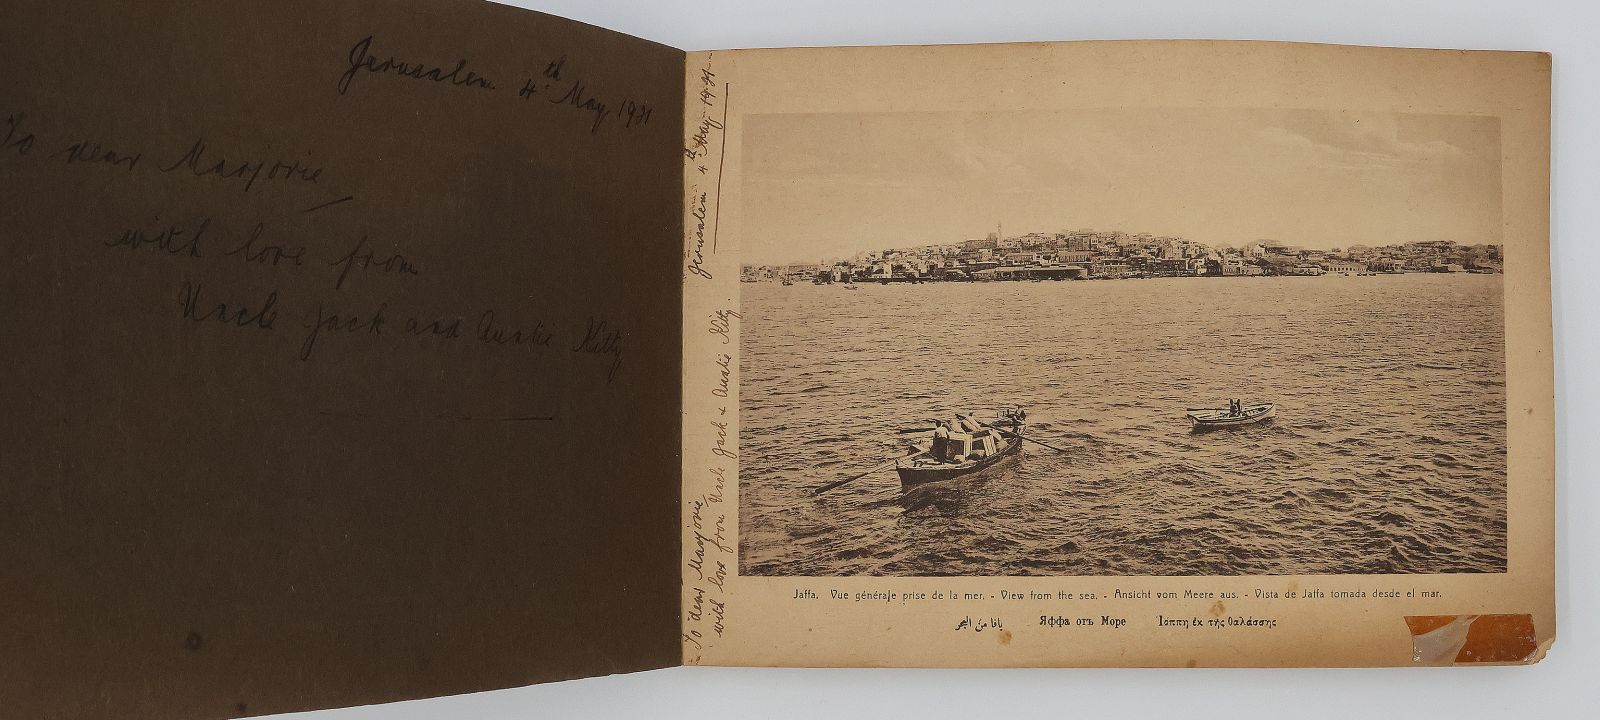 Jerusalem 4th May 1931
To dear Marjorie
with love from
Uncle Jack and Auntie Kitty
Jerusalem 4th May 1931
To dear Marjorie
with love from Uncle Jack & Auntie Kitty.
Jaffa. Vue générale prise de la mer. - View from the sea. - Ansicht vom Meere aus. - Vista de Jaffa tomada desde el mar.
يافا من البحر Яффа отъ Море Ἰόππη ἐκ τῆς θαλάσσης